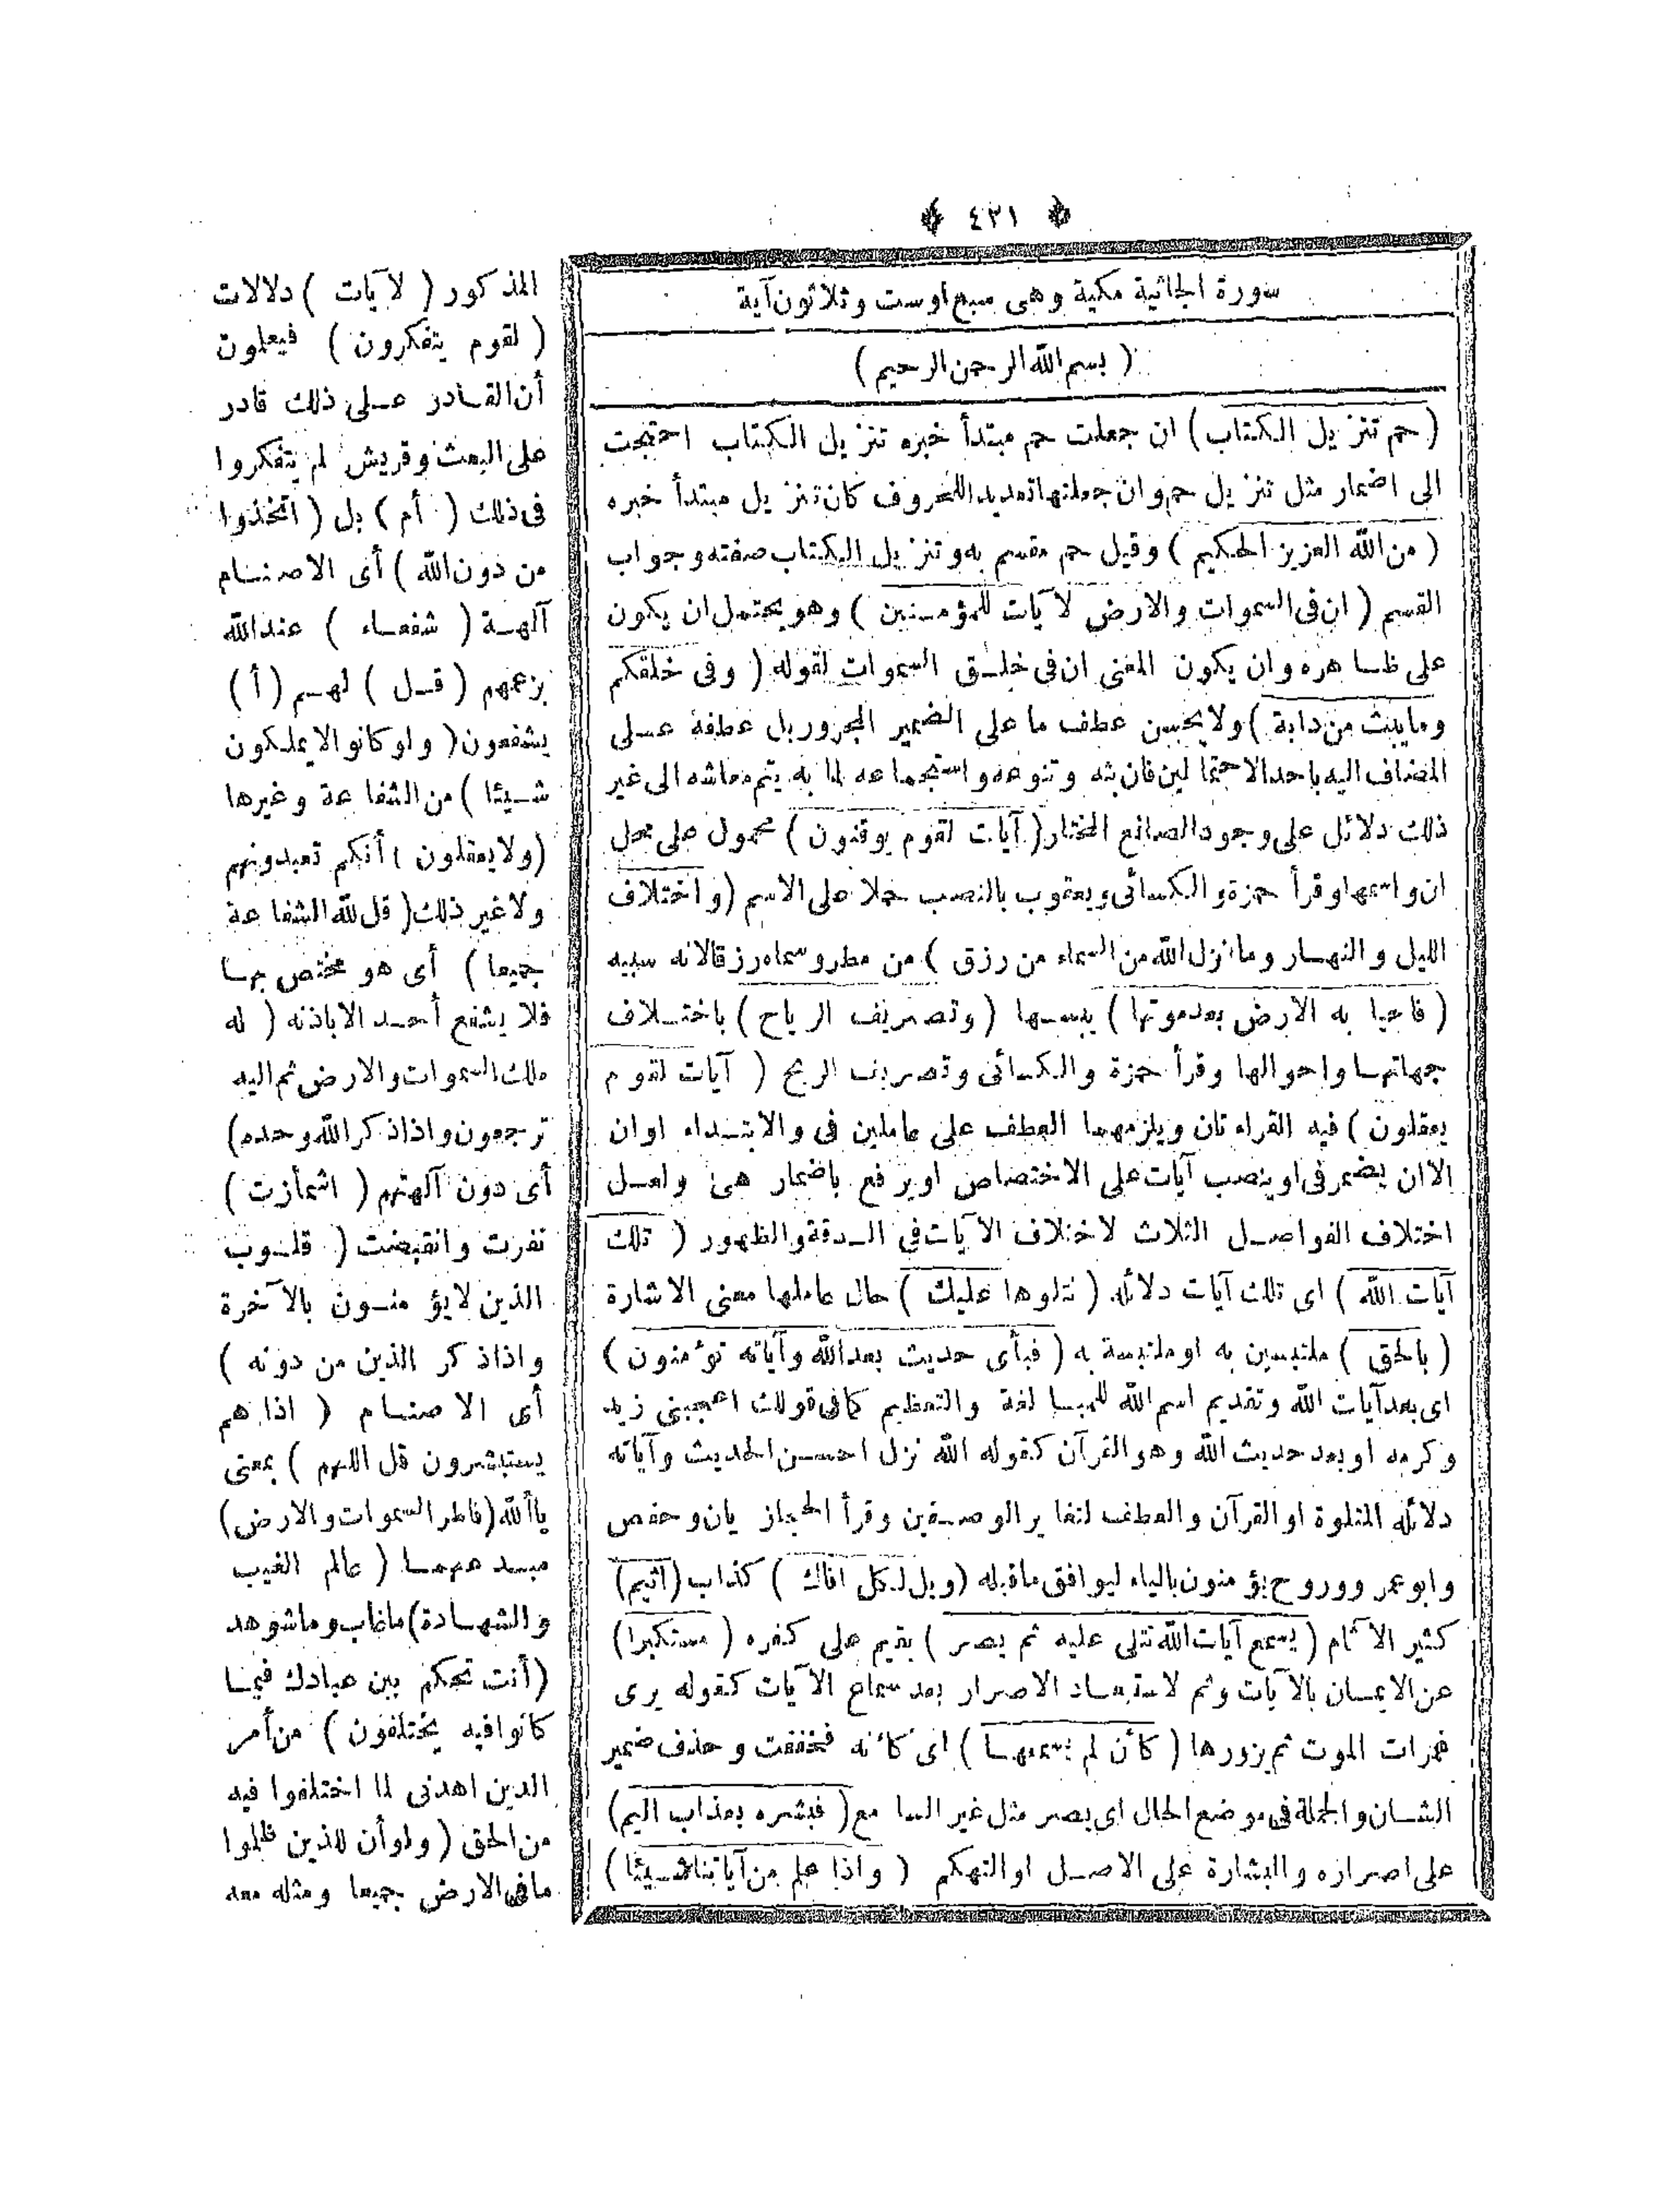 ٤٢١
سورة الجاثية مكية وهى سبع اوست وثلاثون آية
( بسم الله الرحمن الرحيم )
( حم تنزيل الكتاب ) ان جعلت حم مبتدأ خبره تنزيل الكتاب احتجت
الى اضمار مثل تنزيل حم وان جعلتها تعديد اللحروف كان تنزيل مبتدأ خبره
( من الله العزيز الحكيم ) وقيل حم مقسم به وتنزيل الكتاب صفته وجواب
القسم ( ان فى السموات والارض لآيات للمؤمنين ) وهو يحتمل ان يكون
على ظاهره وان يكون المعنى ان فى خلق السموات لقوله ( وفى خلقكم
وما يبث من دابة ) ولا يحسن عطف ما على الضمير المجرور بل عطفه على
المضاف اليه باحد الاحتمالين فان بثه وتنوعه واستجماعه لما به يتم معاشه الى غير
ذلك دلائل على وجود الصانع المختار ( آيات لقوم يوقنون ) محمول على محل
ان واسمها وقرأ حمزة والكسائى ويعقوب بالنصب حملا على الاسم ( واختلاف
الليل والنهار وما انزل الله من السماء من رزق ) من مطر وسماه رزقا لانه سببه
( فاحيا به الارض بعد موتها ) يبسها ( وتصريف الرياح ) باختلاف
جهاتها واحوالها وقرأ حمزة والكسائى وتصريف الريح ( آيات لقوم
يعقلون ) فيه القراءتان ويلزمهما العطف على عاملين فى والابتداء او ان
الا ان يضمر فى او ينصب آيات على الاختصاص او يرفع باضمار هى ولعل
اختلاف الفواصل الثلاث لاختلاف الآيات فى الدقة والظهور ( تلك
آيات الله ) اى تلك آيات دلائله ( نتلوها عليك ) حال عاملها معنى الاشارة
( بالحق ) ملتبسين به او ملتبسة به ( فبأى حديث بعد الله وآياته تؤمنون )
اى بعد آيات الله وتقديم اسم الله للمبالغة والتعظيم كما فى قولك اعجبنى زيد
وكرمه او بعد حديث الله وهو القرآن كقوله الله نزل احسن الحديث وآياته
دلائله المتلوة او القرآن والعطف لتغاير الوصفين وقرأ الحجازيان وحفص
وابو عمر وو روح يؤمنون بالياء ليوافق ماقبله ( ويل لكل افاك ) كذاب ( اثيم )
كثير الآثام ( يسمع آيات الله تتلى عليه ثم يصر ) يقيم على كفره ( مستكبرا )
عن الايمان بالآيات وثم لاستبعاد الاصرار بعد سماع الآيات كقوله يرى
غمرات الموت ثم يزورها ( كأن لم يسمعها ) اى كأنه فخففت وحذف ضمير
الشان والجملة فى موضع الحال اى يصر مثل غير السامع ( فبشره بعذاب اليم )
على اصراره والبشارة على الاصل او التهكم ( واذا علم من آياتنا شيئا )
المذكور ( لآيات ) دلالات
( لقوم يتفكرون ) فيعلمون
أن القادر على ذلك قادر
على البعث وقريش لم يتفكروا
فى ذلك ( أم ) بل ( اتخذوا
من دون الله ) أى الاصنام
آلهة ( شفعاء ) عند الله
بزعمهم ( قل ) لهم ( أ )
يشفعون ( ولو كانوا لا يملكون
شيئا ) من الشفاعة وغيرها
( ولا يعقلون ) أنكم تعبدونهم
ولا غير ذلك ( قل لله الشفاعة
جميعا ) أى هو مختص بها
فلا يشفع أحد الا باذنه ( له
ملك السموات والارض ثم اليه
ترجعون واذا ذكر الله وحده )
أى دون آلهتهم ( اشمأزت )
نفرت وانقبضت ( قلوب
الذين لا يؤمنون بالآخرة
واذا ذكر الذين من دونه )
أى الاصنام ( اذا هم
يستبشرون قل اللهم ) بمعنى
ياألله ( فاطر السموات والارض )
مبدعهما ( عالم الغيب
والشهادة ) ما غاب وما شوهد
( أنت تحكم بين عبادك فيما
كانوا فيه يختلفون ) من أمر
الدين اهدنى لما اختلفوا فيه
من الحق ( ولو أن للذين ظلموا
ما فى الارض جميعا ومثله معه